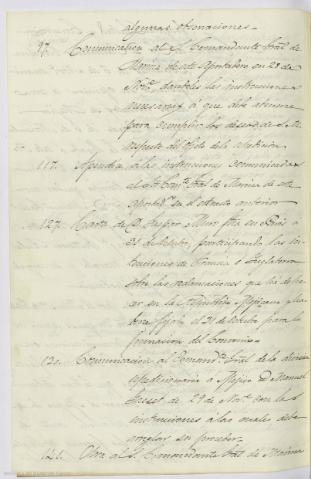 algunas observaciones.
97. Comunicacion al Sr. Comandante Gral. de
Marina de este Apostadero en 28 de
Nove. dandole las instrucciones
necesarias á que debe atenerse
para cumplir los deseos de S. M.
respecto al objeto de la espedicion.
117. Apendice á las instrucciones comunicadas
al Sr. Comte. Gral. de Marina de este
Apostado. en el estracto anterior
127. Carta de D. Gaspar Muro fha. en Paris á
21 de Octubre, participando las in-
tenciones de Francia é Inglaterra
sobre las reclamaciones que ha de ha-
cer en la República Mejicana y haber
se fijado el 31 de Octubre para la
formacion del Convenio.
120. Comunicacion al Comandte. Gral. de la division
espedicionaria a Mejico D. Manuel
Gasset de 29 de Nove. con las
instrucciones á las cuales debe
arreglar su proceder.
121. Otra al Sr. Comandante Gral. de Marina